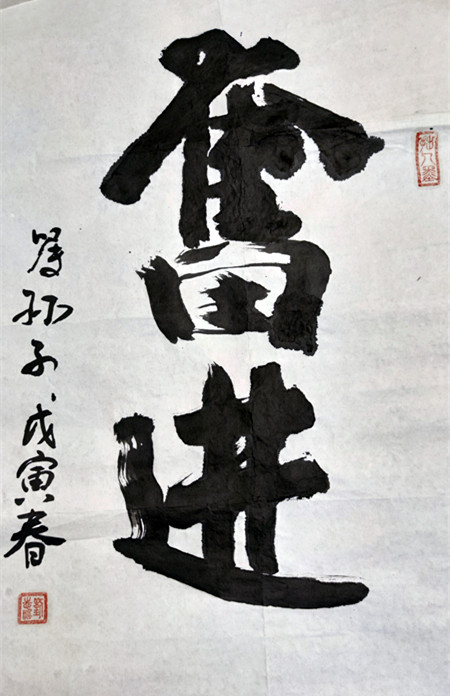 奮进
孺子 戊寅春